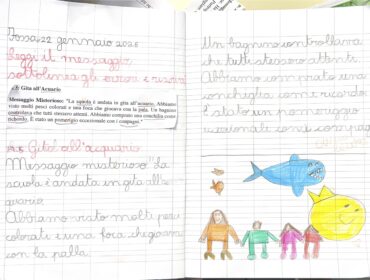 Fossa, 22 gennaio 2025
Leggi il messaggio
sottolinea gli errori e riscrivi
Gita all'Acuario
Messaggio Misterioso: "La squola è andata in gita all'acuario. Abbiamo
visto molti pesci colorati e una foca che giocava con la pala. Un bagnino
controlava che tutti stessero attenti. Abbiamo comprato una conchilia come
ricordo. È stato un pomerigio eccezionale con i compagni."
Gita all'acquario
Messaggio misterioso: "La
scuola è andata in gita all'ac
quario.
Abbiamo visto molti pesci
colorati e una foca che giocava
con la palla.
Un bagnino controllava
che tutti stessero attenti.
Abbiamo comprato una
conchiglia come ricordo.
È stato un pomeriggio
eccezionale con i compagni